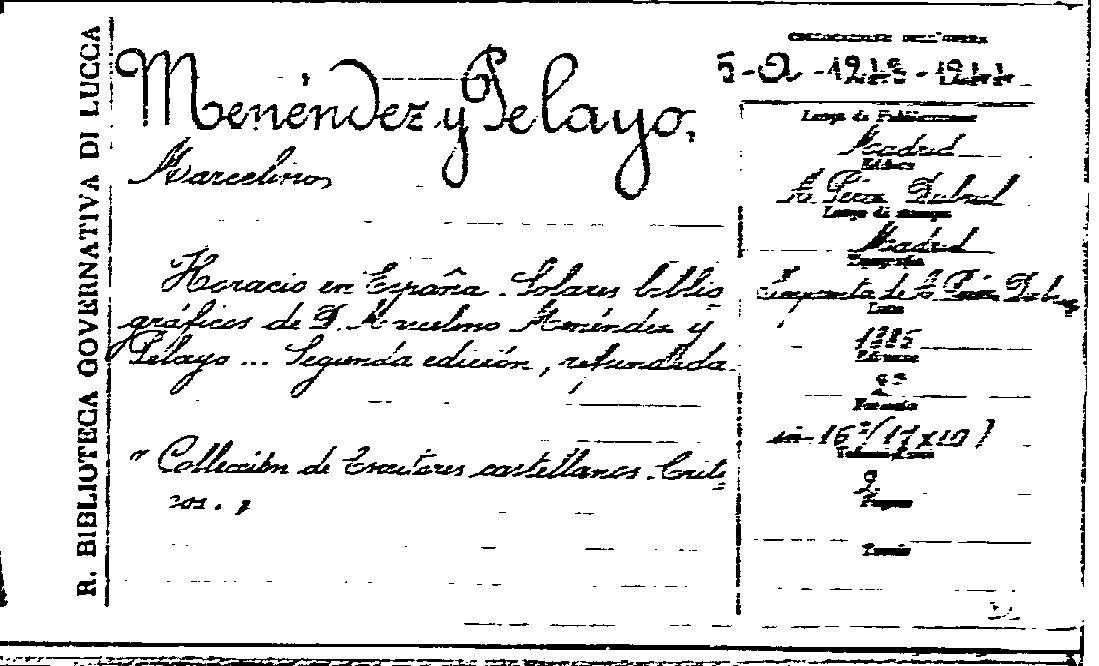 R. BIBLIOTECA GOVERNATIVA DI LUCCA
Menéndez y Pelayo,
Marcelino
Horacio en España. Solares biblio=
gráficos de D. Marcelino Menéndez y
Pelayo ... Segunda edición, refundida
" Collección de Escritores castellanos. Críti=
cos. "
COLLOCAZIONE DELL'OPERA
Luogo di Pubblicazione
Madrid
Editore
A. Pérez Dubrull
Luogo di stampa
Madrid
Tipografia
Imprenta de A. Pérez Dubrull
Data
1885
Edizione
2ª
Formato
in-16º (17x10)
2
Pagine
Tavole